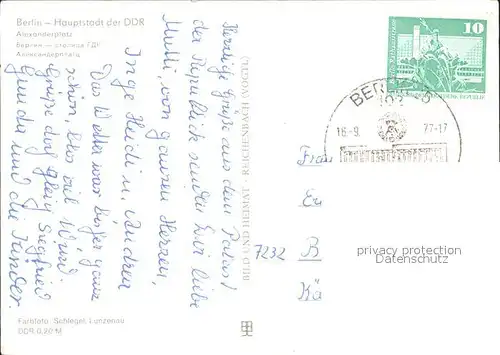 Berlin – Hauptstadt der DDR
Alexanderplatz
Берлин – столица ГДР
Александерплатц
Herzliche Grüße aus dem Palast
der Republik sendet Dir liebe
Mutti, von ganzem Herzen,
Inge, Heidi u. Andrea
Das Wetter war bisher ganz
schön, bloß viel Wind.
Grüße doch Siegfried
Gerda und die Kinder.
Farbfoto: Schlegel, Lunzenau
DDR 0,20 M
BILD UND HEIMAT · REICHENBACH (VOGTL)
10
BERLIN
102
16.-9. 77-17
Frau
7232 B
privacy protection
Datenschutz